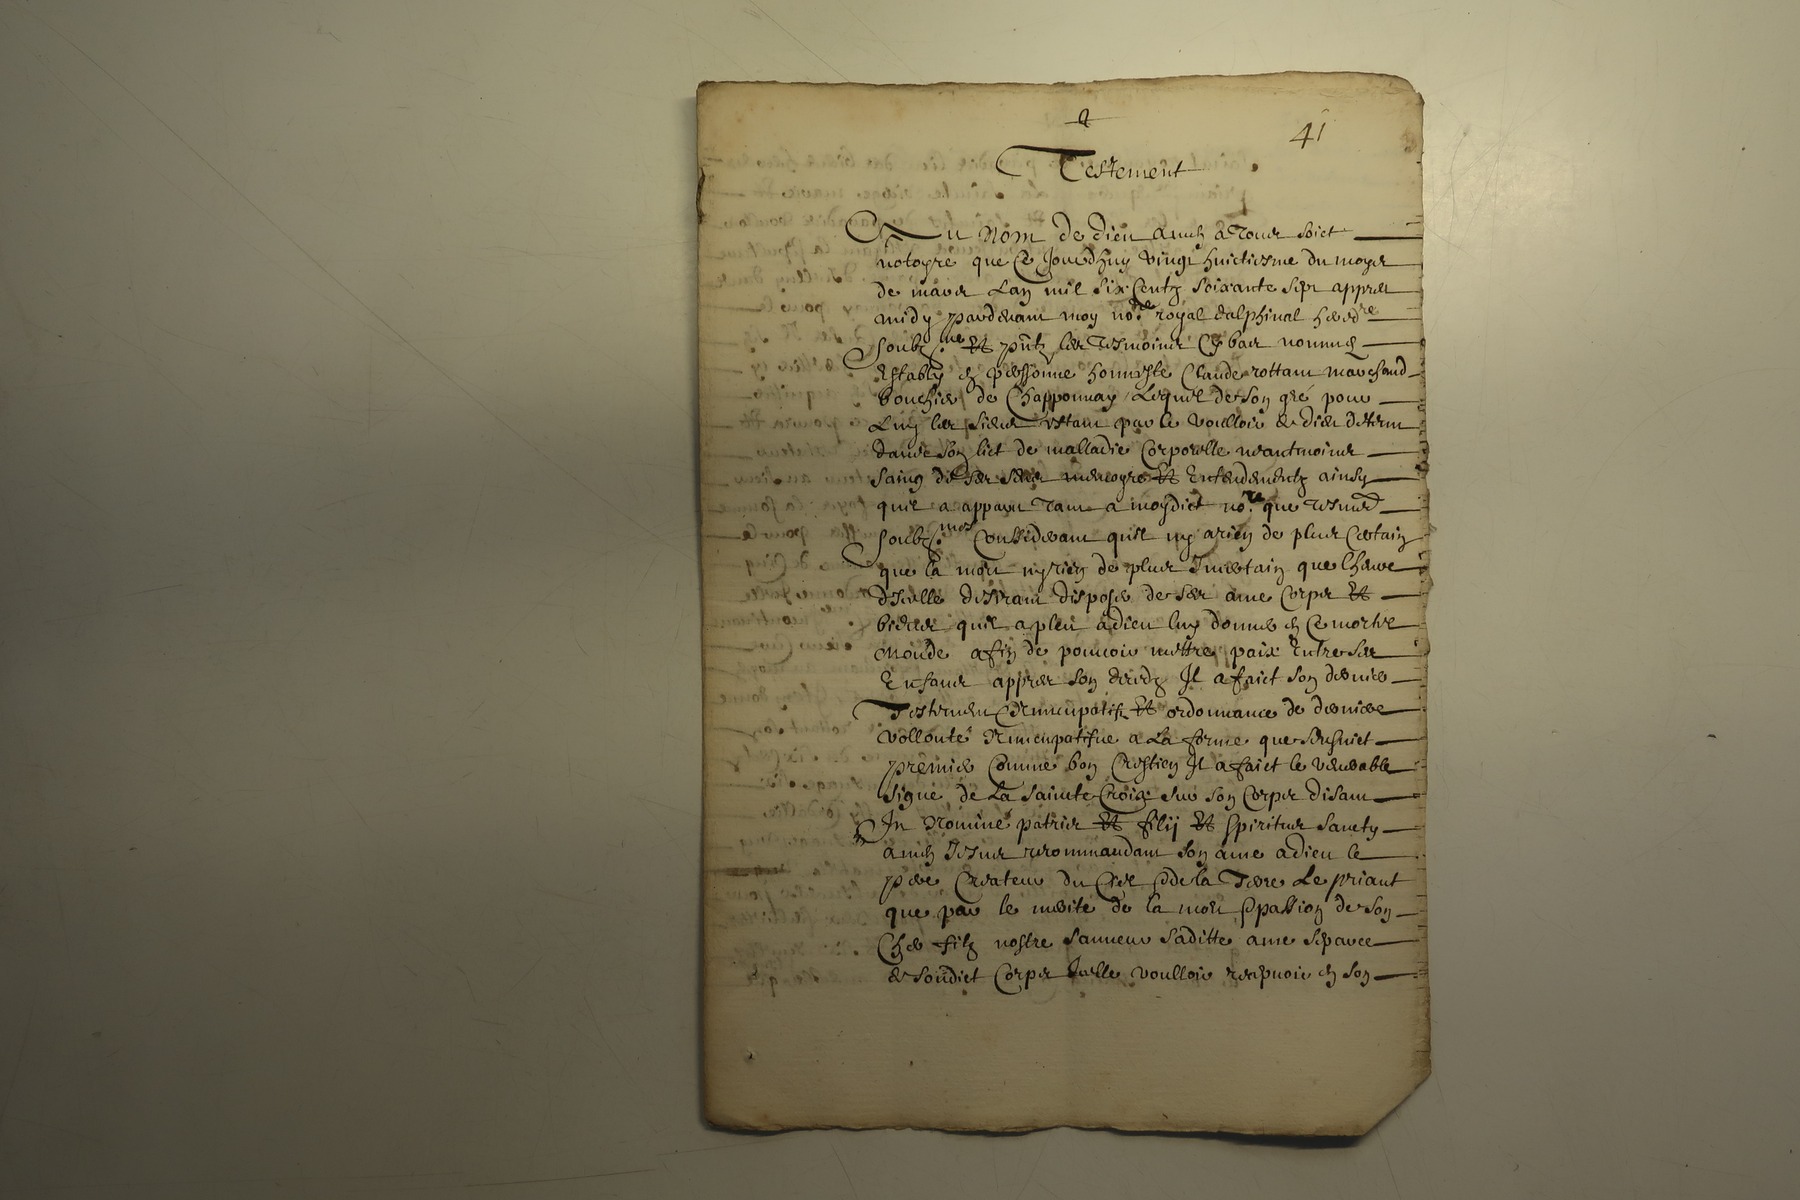 41
Testement
Au Nom de dieu amen a tous soict
notoyre que ce Jourdhuy vingt huictiesme du moys
de mars Lan mil six centz soixante sept appres
midy pardevant moy no.re royal dalphinal hered.re
soubz.ne et pntz les tesmoins cy bas nommes
Estably en personne honneste Claude rottam marchand
bouchier de Chapponnay Lequel de son gré pour
Luy les siens estant par le voulloir de dieu detenu
dans son lict de malladie corporelle neantmoins
saing de ses sens memoyre et Entendementz ainsy
quil a apparu tant a moydict no.re que tesmoingz
soubz.nes Considerant quil ny arien de plus certain
que la mort ny rien de plus Incertain que lheure
dicelle desirant disposer de ses ame corps et
biens quil a pleu adieu luy donner en ce mortel
monde afin de pouvoir mettre paix Entre ses
Enfans appres son decedz Il a faict son dernier
Testement Nuncupatif et ordonnance de derniere
vollonté Nuncupatifue a La forme que sensuict
premier comme bon Crestien Il a faict le venerable
signe de La sainte Croix sur son corps disant
In Nomine patris et filij et spiritus sancty
amen Jesus recommandant son ame adieu le
pere Createur du Ciel & de la Terre Le priant
que par le merite de la mort & passion de son
Cher filz nostre sauveur saditte ame separee
de sondict corps Icelle voulloir recepvoir en son